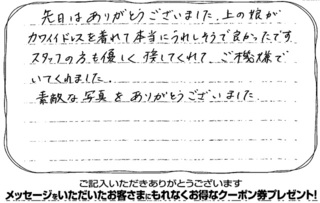 先日はありがとうございました。上の娘が
カワイイドレスを着れて本当にうれしそうで良かったです
スタッフの方も優しく接してくれて、ご機嫌で
いてくれました。
素敵な写真をありがとうございました
ご記入いただきありがとうございます
メッセージをいただいたお客さまにもれなくお得なクーポン券プレゼント!